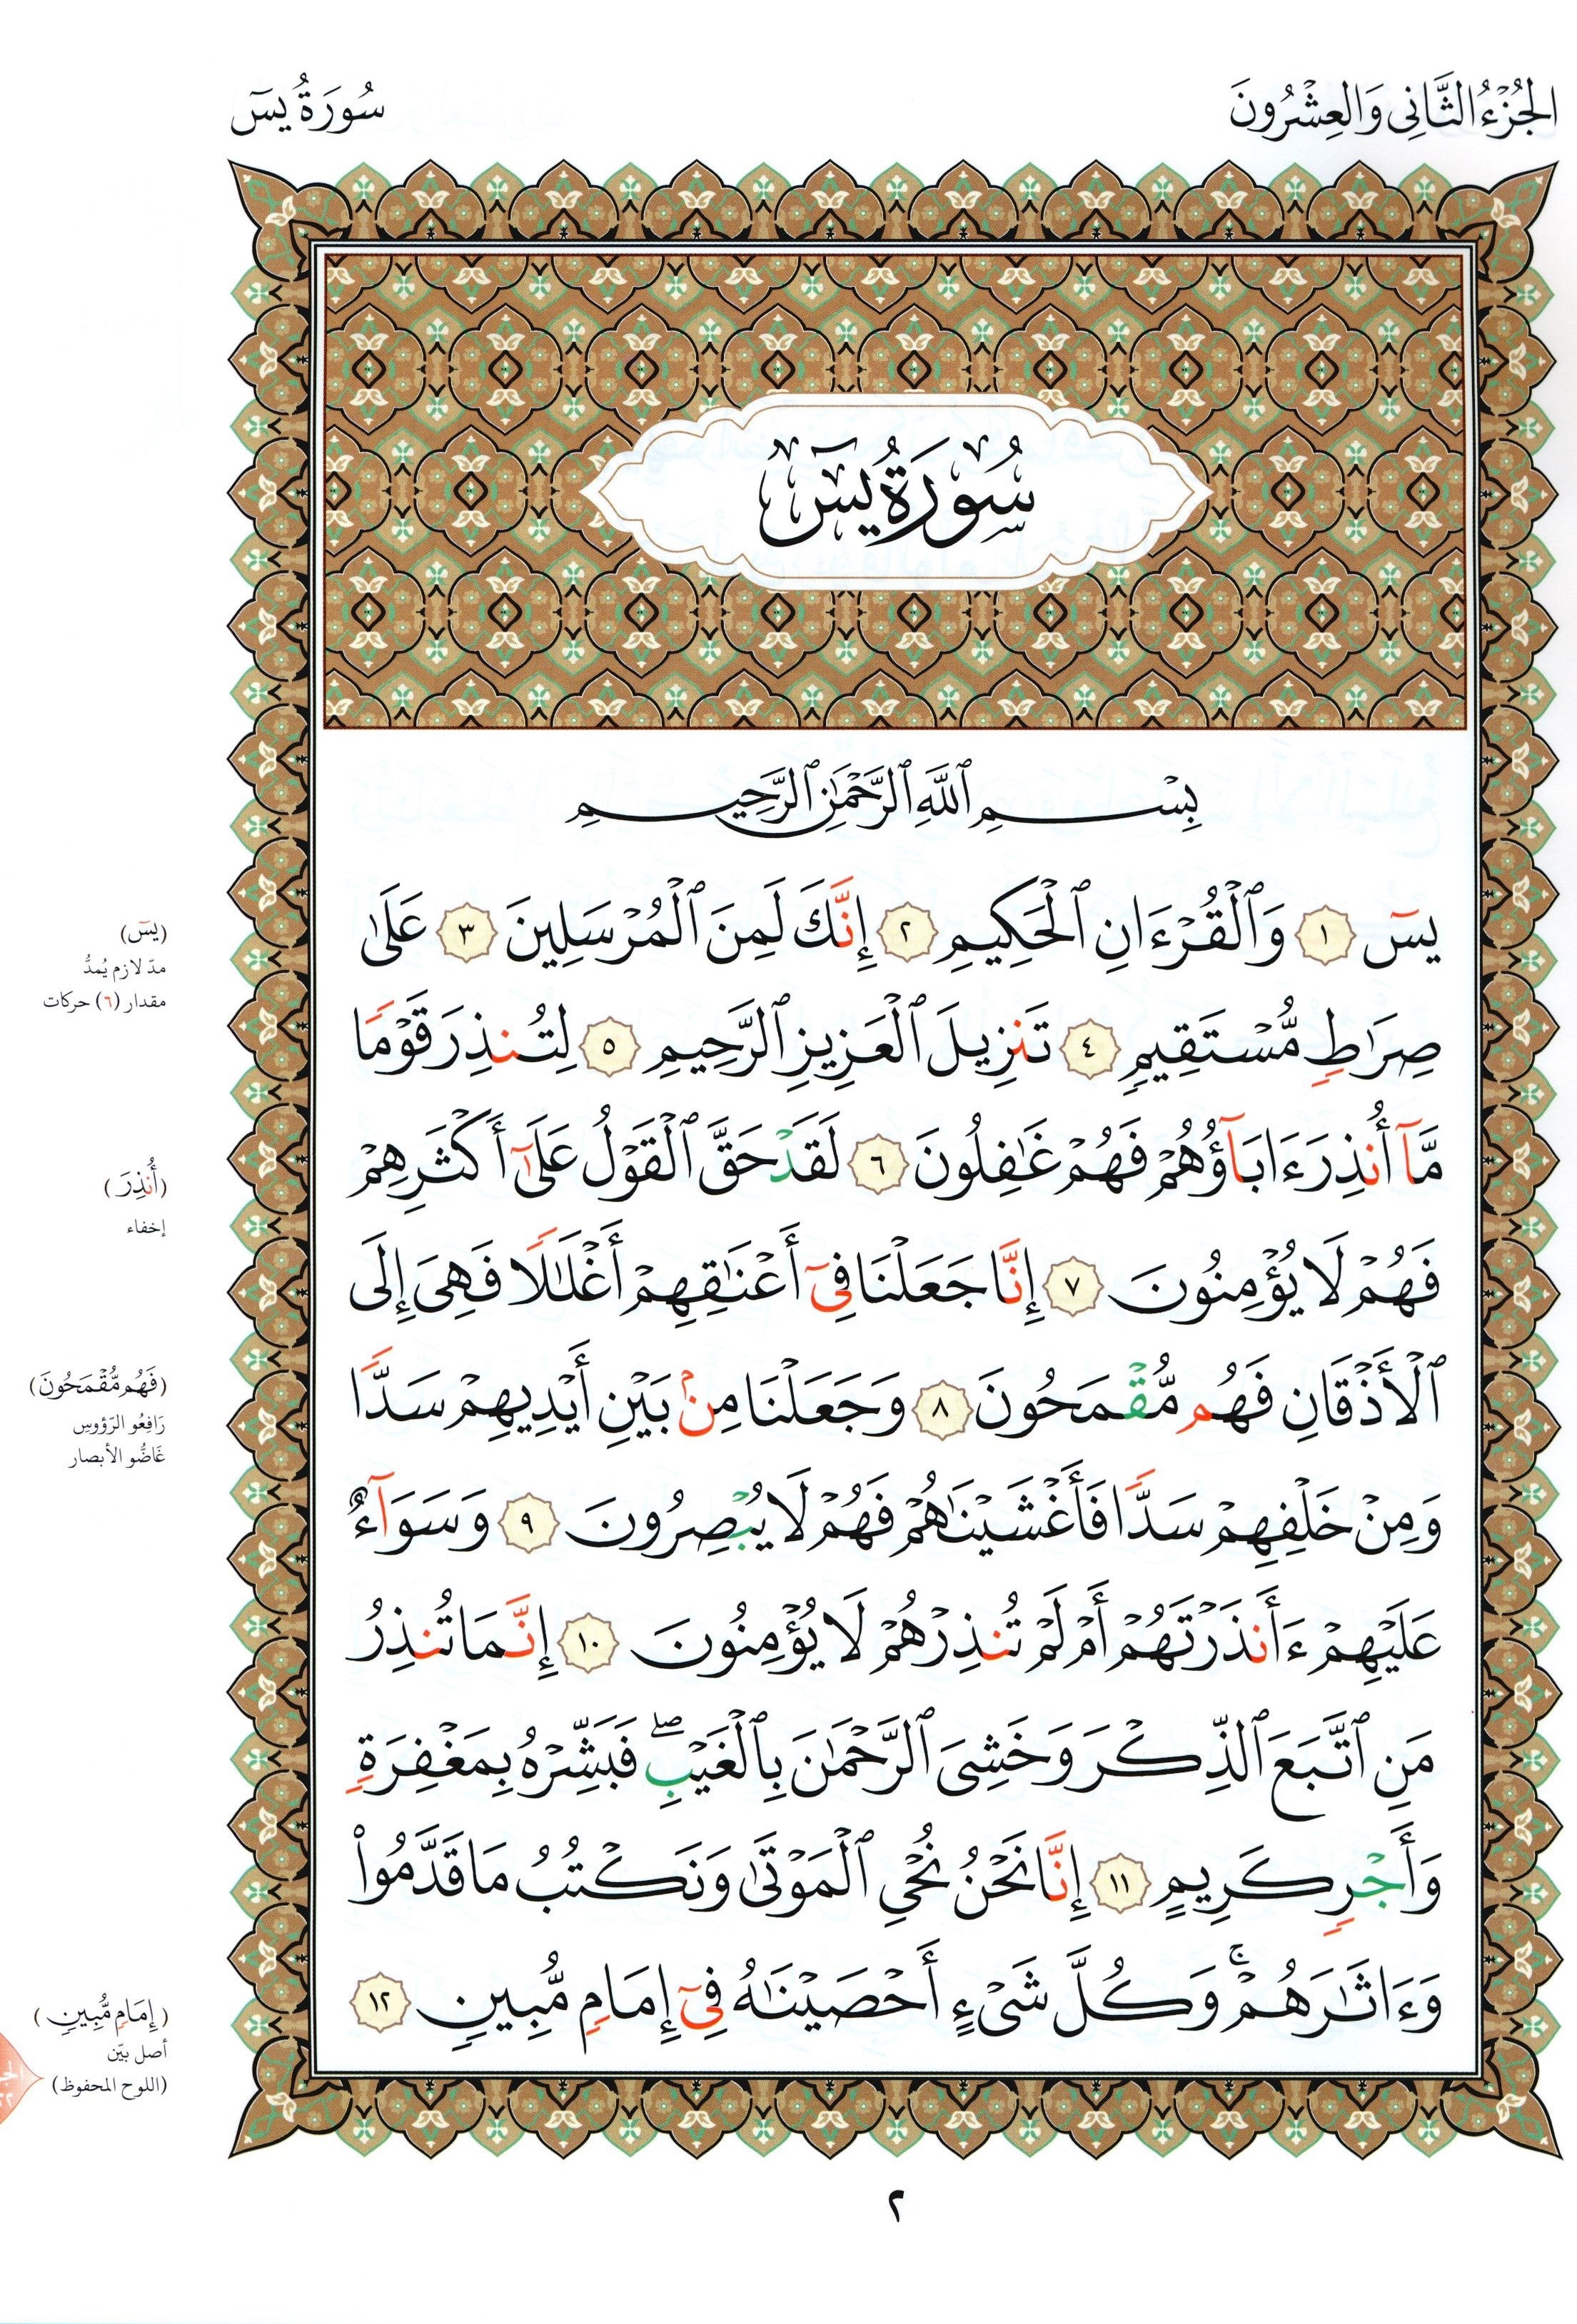 الجُزْءُ الثَّانِى وَالعِشْرُونَ
سُورَةُ يسٓ
سُورَةُ يسٓ
بِسْمِ ٱللَّهِ ٱلرَّحْمَٰنِ ٱلرَّحِيمِ
يسٓ ١ وَٱلْقُرْءَانِ ٱلْحَكِيمِ ٢ إِنَّكَ لَمِنَ ٱلْمُرْسَلِينَ ٣ عَلَىٰ
صِرَٰطٍ مُّسْتَقِيمٍ ٤ تَنزِيلَ ٱلْعَزِيزِ ٱلرَّحِيمِ ٥ لِتُنذِرَ قَوْمًا
مَّآ أُنذِرَ ءَابَآؤُهُمْ فَهُمْ غَٰفِلُونَ ٦ لَقَدْ حَقَّ ٱلْقَوْلُ عَلَىٰٓ أَكْثَرِهِمْ
فَهُمْ لَا يُؤْمِنُونَ ٧ إِنَّا جَعَلْنَا فِىٓ أَعْنَٰقِهِمْ أَغْلَٰلًا فَهِىَ إِلَى
ٱلْأَذْقَانِ فَهُم مُّقْمَحُونَ ٨ وَجَعَلْنَا مِنۢ بَيْنِ أَيْدِيهِمْ سَدًّا
وَمِنْ خَلْفِهِمْ سَدًّا فَأَغْشَيْنَٰهُمْ فَهُمْ لَا يُبْصِرُونَ ٩ وَسَوَآءٌ
عَلَيْهِمْ ءَأَنذَرْتَهُمْ أَمْ لَمْ تُنذِرْهُمْ لَا يُؤْمِنُونَ ١٠ إِنَّمَا تُنذِرُ
مَنِ ٱتَّبَعَ ٱلذِّكْرَ وَخَشِىَ ٱلرَّحْمَٰنَ بِٱلْغَيْبِ ۖ فَبَشِّرْهُ بِمَغْفِرَةٍ
وَأَجْرٍ كَرِيمٍ ١١ إِنَّا نَحْنُ نُحْىِ ٱلْمَوْتَىٰ وَنَكْتُبُ مَا قَدَّمُوا۟
وَءَاثَٰرَهُمْ ۚ وَكُلَّ شَىْءٍ أَحْصَيْنَٰهُ فِىٓ إِمَامٍ مُّبِينٍ ١٢
(يسٓ)
مدّ لازم يُمدُّ
مقدار (٦) حركات
(أُنذِرَ)
إخفاء
(فَهُم مُّقْمَحُونَ)
رَافِعُو الرّؤوسِ
غَاضُّو الأبصار
(إِمَامٍ مُّبِينٍ)
أصل بيّن
(اللوح المحفوظ)
٢